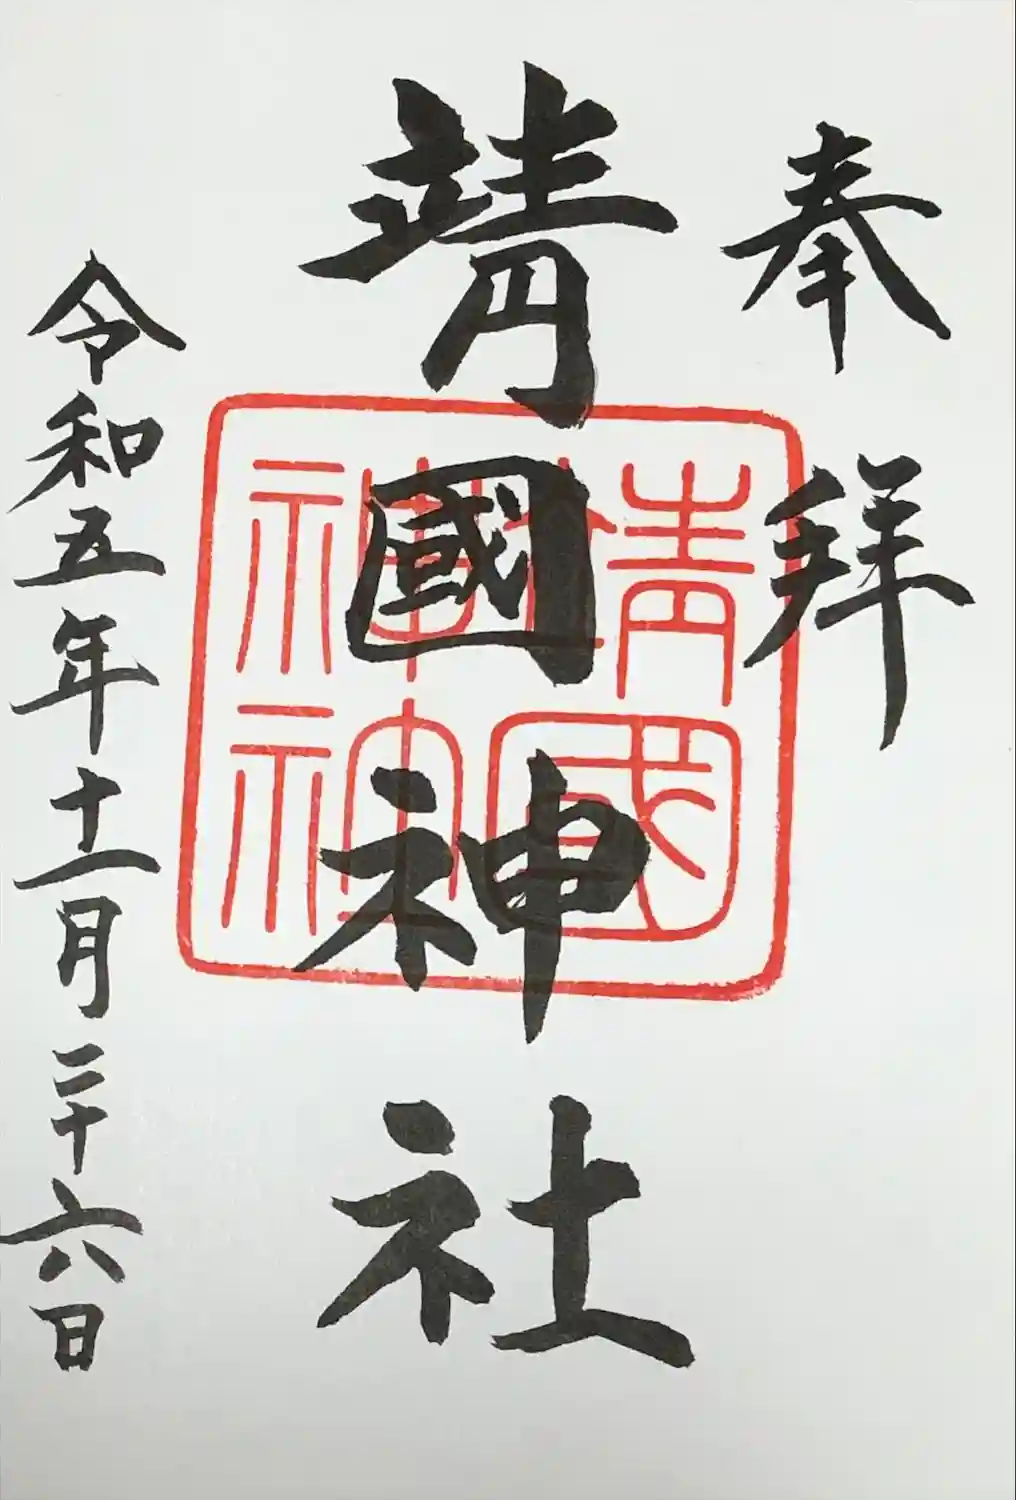 奉拝
靖國神社
靖國
神社
令和五年十一月二十六日